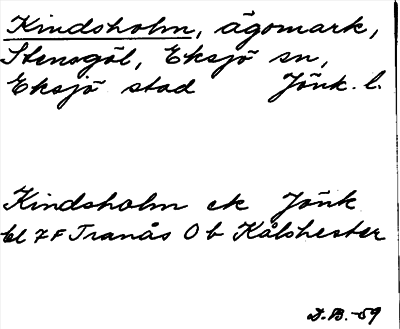 Kindsholm, ägomark,
Stensgöl, Eksjö sn,
Eksjö stad Jönk. l.
Kindsholm ek Jönk
bl 7F Tranås O b Kålshester
D.B.-59